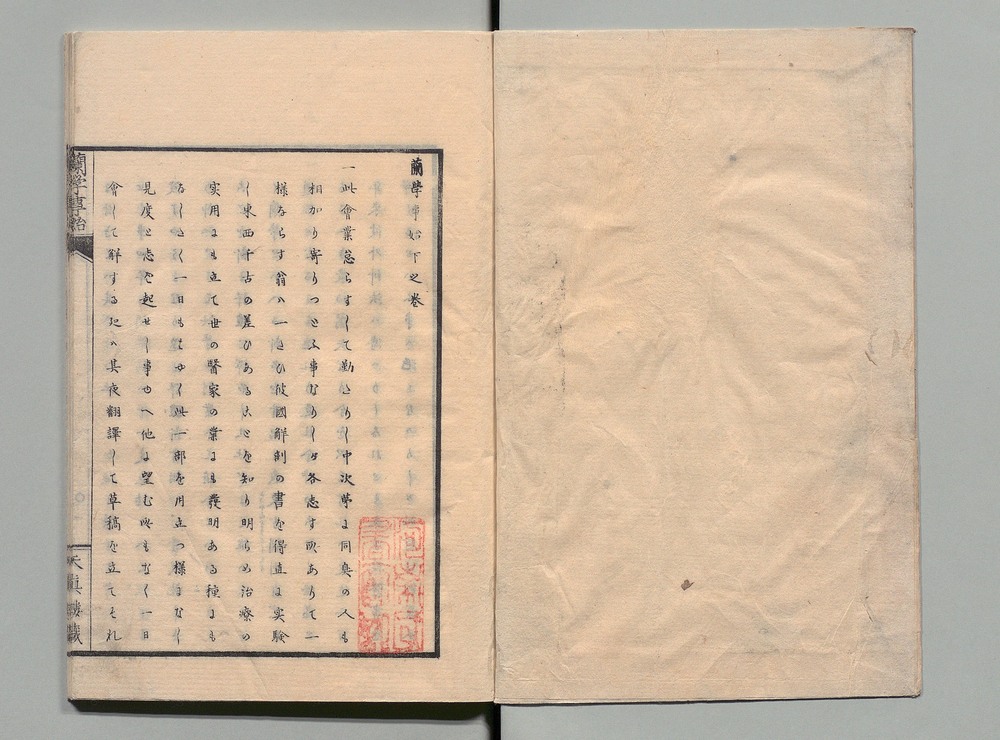 蘭學事始下之卷
一此會業怠らすして勤たりし中次第に同臭の人も
相加り寄りつとふ事なりしか各志す所ありて一
樣ならす翁ハ一たひ彼國解剖の書を得直に実驗
し東西千古の差ひあることを知り明らめ治療の
実用にも立て世の醫家の業にも發明ある種にも
なしたく一日もはやく此一部を用立つ樣になし
見度と志を起せし事ゆへ他に望む所もなく一日
會して解する処ハ其夜翻譯して草稿を立てそれ
蘭學事始
天真樓藏